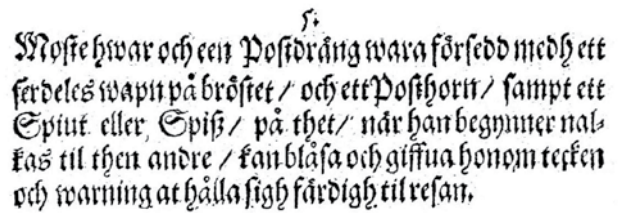 5.
Moste hwar och een Postdräng wara försedd medh ett
serdeles wapn på bröstet / och ett Posthorn / sampt ett
Spiut eller Spiß / på thet / när han begynner nal-
kas til then andre / kan blåsa och giffua honom tecken
och warning at hålla sigh färdigh til resan.